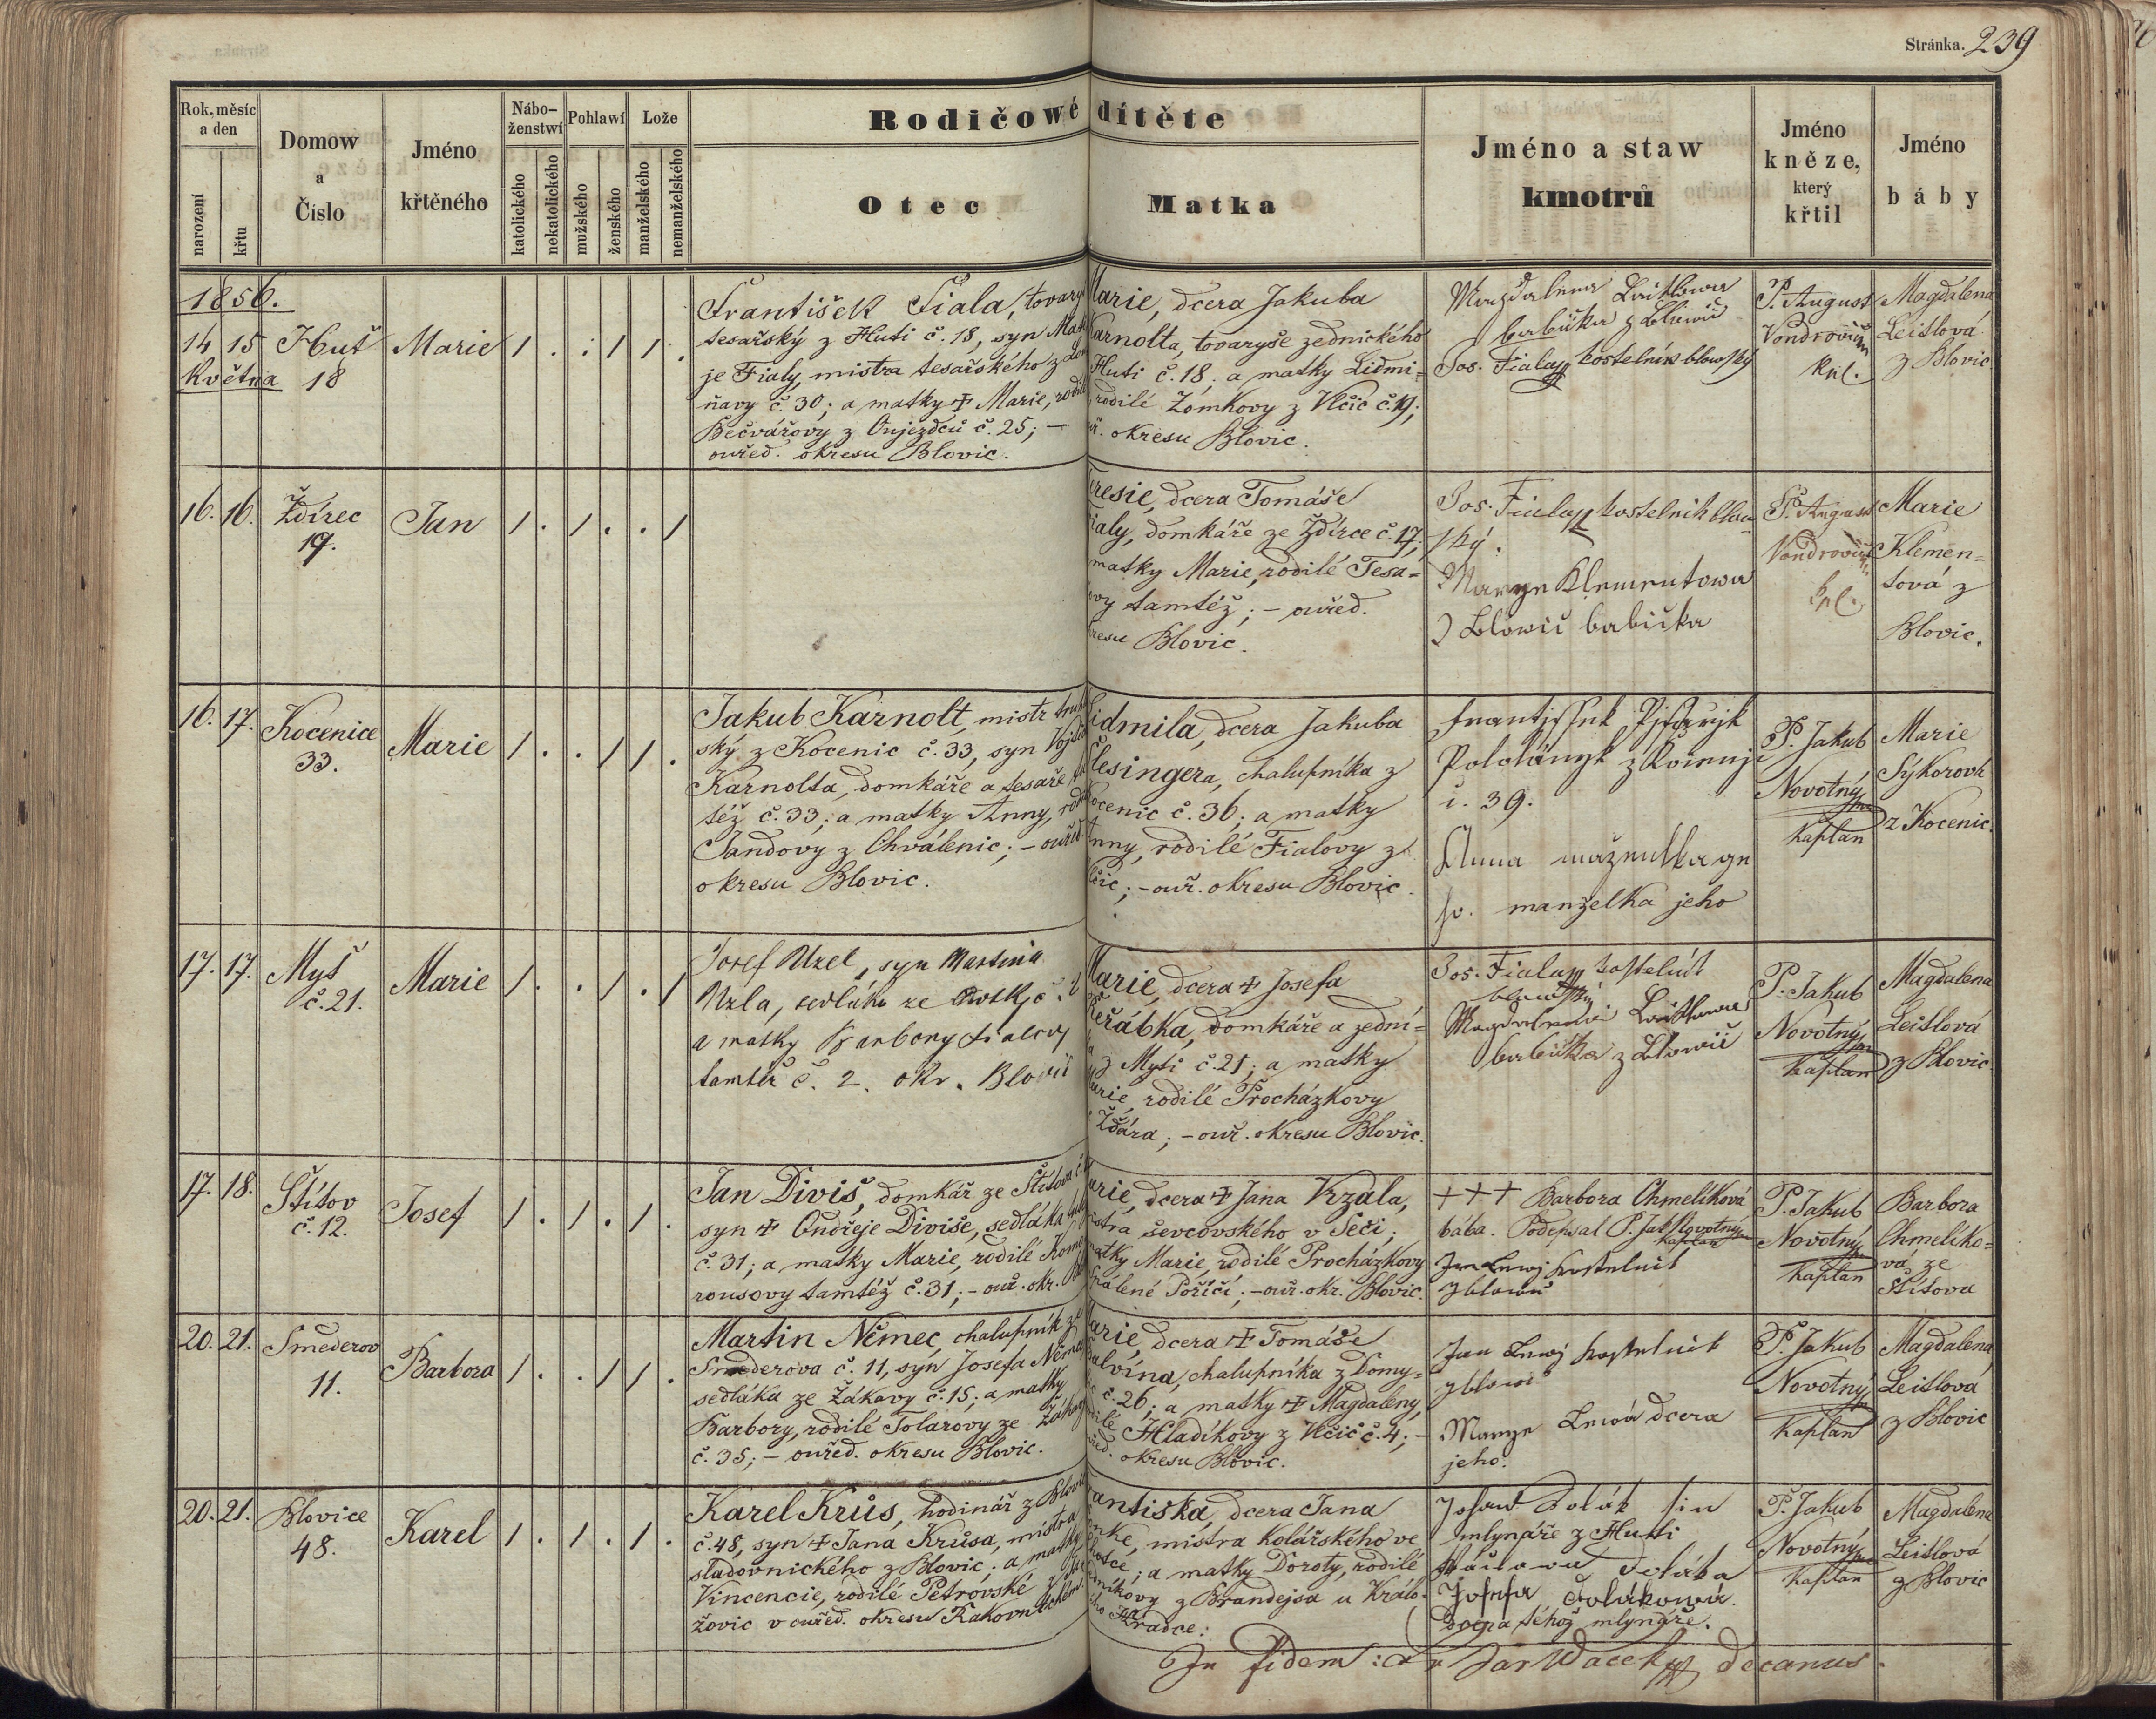 Stránka. 239
Rok, měsíc a den
narození
křtu
Domow a Číslo
Jméno křtěného
Nábo-ženstwí
katolického
nekatolického
Pohlawí
mužského
ženského
Lože
manželského
nemanželského
Rodičowé dítěte
Otec
Matka
Jméno a staw kmotrů
Jméno kněze, který křtil
Jméno báby
1856.
14 15
Května
Huť
18
Marie
1 . . 1 1 .
František Fiala, tovary
tesařský z Huti č. 18, syn Mat
je Fialy, mistra tesařského z
ňavy č. 30; a matky ☩ Marie,
Bečvářovy z Oujezdců č. 25; –
ouřed. okresu Blovic.
Marie, dcera Jakuba
Karnolta, tovaryše zednického
Huti č. 18; a matky Lidmi=
rodilé Zomkovy z Vlčic č. 19;
okresu Blovic.
Magdalena Leitlowa
babička z Blowic
Jos. Fiala kostelník blowský
P. August
Vondrovic
kpl.
Magdalena
Leitlová
z Blovic
16. 16.
Ždírec
19.
Jan
1 . 1 . . 1
Teresie, dcera Tomáše
Fialy, domkáře ze Ždírce č. 17,
matky Marie, rodilé Tesa=
tamtéž; – ouřed.
Blovic.
Jos. Fiala kostelnik blow
ský.
Marye Klementowa
z Blowic babička
P. August
kpl.
Marie
Klemen=
tová z
Blovic.
16. 17.
Kocenice
33.
Marie
1 . . 1 1 .
Jakub Karnolt, mistr
ský z Kocenic č. 33, syn
Karnolta, domkáře a tesaře
též č. 33; a matky Anny,
Jandovy z Chválenic; – ouřed.
okresu Blovic.
Lidmila, dcera Jakuba
Šlesingera, chalupníka z
Kocenic č. 36; a matky
Anny, rodilé Fialovy z
Vlčic; – ouř. okresu Blovic.
č. 39.
Anna
manželka jeho
P. Jakub
Novotný
kaplan
Marie
Sýkorová
z Kocenic.
17. 17.
Myť
č. 21.
Marie
1 . . 1 . 1
Josef Uzel, syn Martina
Uzla, sedláka ze
a matky Barbory Fialovy
tamtéž č. 2. okr. Blovic
Marie, dcera ☩ Josefa
Jeřábka, domkáře a zední=
z Myti č. 21; a matky
Marie rodilé Procházkovy
Žďára; – ouř. okresu Blovic.
Jos. Fiala kostelník
blowský
Magdalena Leitlowa
babička z Blowic
P. Jakub
Novotný
kaplan
Magdalena
Leitlová
z Blovic
17. 18.
Štítov
č. 12.
Josef
1 . 1 . 1 .
Jan Diviš, domkář ze Štítova č.
syn ☩ Ondřeje Diviše, sedláka
č. 31; a matky Marie, rodilé Kome
rousovy tamtéž č. 31; – ouř. okr.
Marie, dcera ☩ Jana Vrzala,
mistra ševcovského v Seči;
matky Marie, rodilé Procházkovy
Spálené Poříčí; – ouř. okr. Blovic.
+++ Barbora Chmelíková
bába. Podepsal P. Jak. Novotný
kaplan
kostelnik
z blowic
P. Jakub
Novotný
kaplan
Barbora
Chmelíko=
vá ze
Štítova
20. 21.
Smederov
11.
Barbora
1 . . 1 1 .
Martin Němec, chalupník ze
Smederova č. 11, syn Josefa Němc
sedláka ze Žákavy č. 15; a matky
Barbory, rodilé Tolarovy ze Žákavy
č. 35; – ouřed. okresu Blovic.
Marie, dcera ☩ Tomáše
chalupníka z Domy=
č. 26; a matky ☩ Magdaleny,
rodilé Hladíkovy z Vlčic č. 4; –
okresu Blovic.
kostelnik
z blowic
Marye dcera
jeho.
P. Jakub
Novotný
kaplan
Magdalena
Leitlová
z Blovic
20. 21.
Blovice
48.
Karel
1 . 1 . 1 .
Karel Krůs, hodinář z Blovic
č. 48, syn ☩ Jana Krůsa, mistra
sladovnického z Blovic; a matky
Vincencie, rodilé Petrovské z
žovic v ouřed. okresu Rakovnickém.
Frantiska, dcera Jana
mistra kolářského ve
Lhotce; a matky Doroty, rodilé
z Brandejsa u Králo=
Hradce.
sin
mlynáře z Hutti
Josefa Polákowá
dcera téhož mlynáře.
P. Jakub
Novotný
kaplan
Magdalena
Leitlová
z Blovic
In fidem: Jan Wacek decanus.